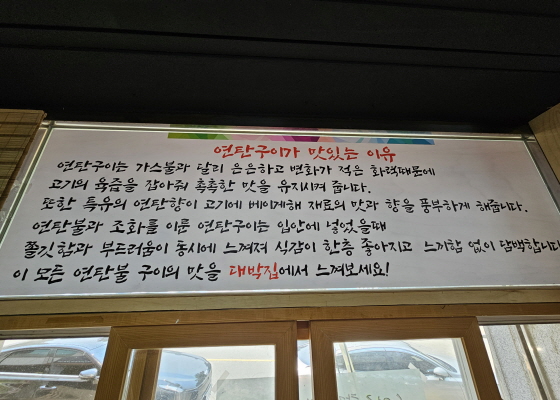 연탄구이가 맛있는 이유
연탄구이는 가스불과 달리 은은하고 변화가 적은 화력때문에
고기의 육즙을 잡아줘 촉촉한 맛을 유지시켜 줍니다.
또한 특유의 연탄향이 고기에 베이게해 재료의 맛과 향을 풍부하게 해줍니다.
연탄불과 조화를 이룬 연탄구이는 입안에 넣었을때
쫄깃함과 부드러움이 동시에 느껴져 식감이 한층 좋아지고 느끼함 없이 담백합니다
이 모든 연탄불 구이의 맛을 대박집에서 느껴보세요!